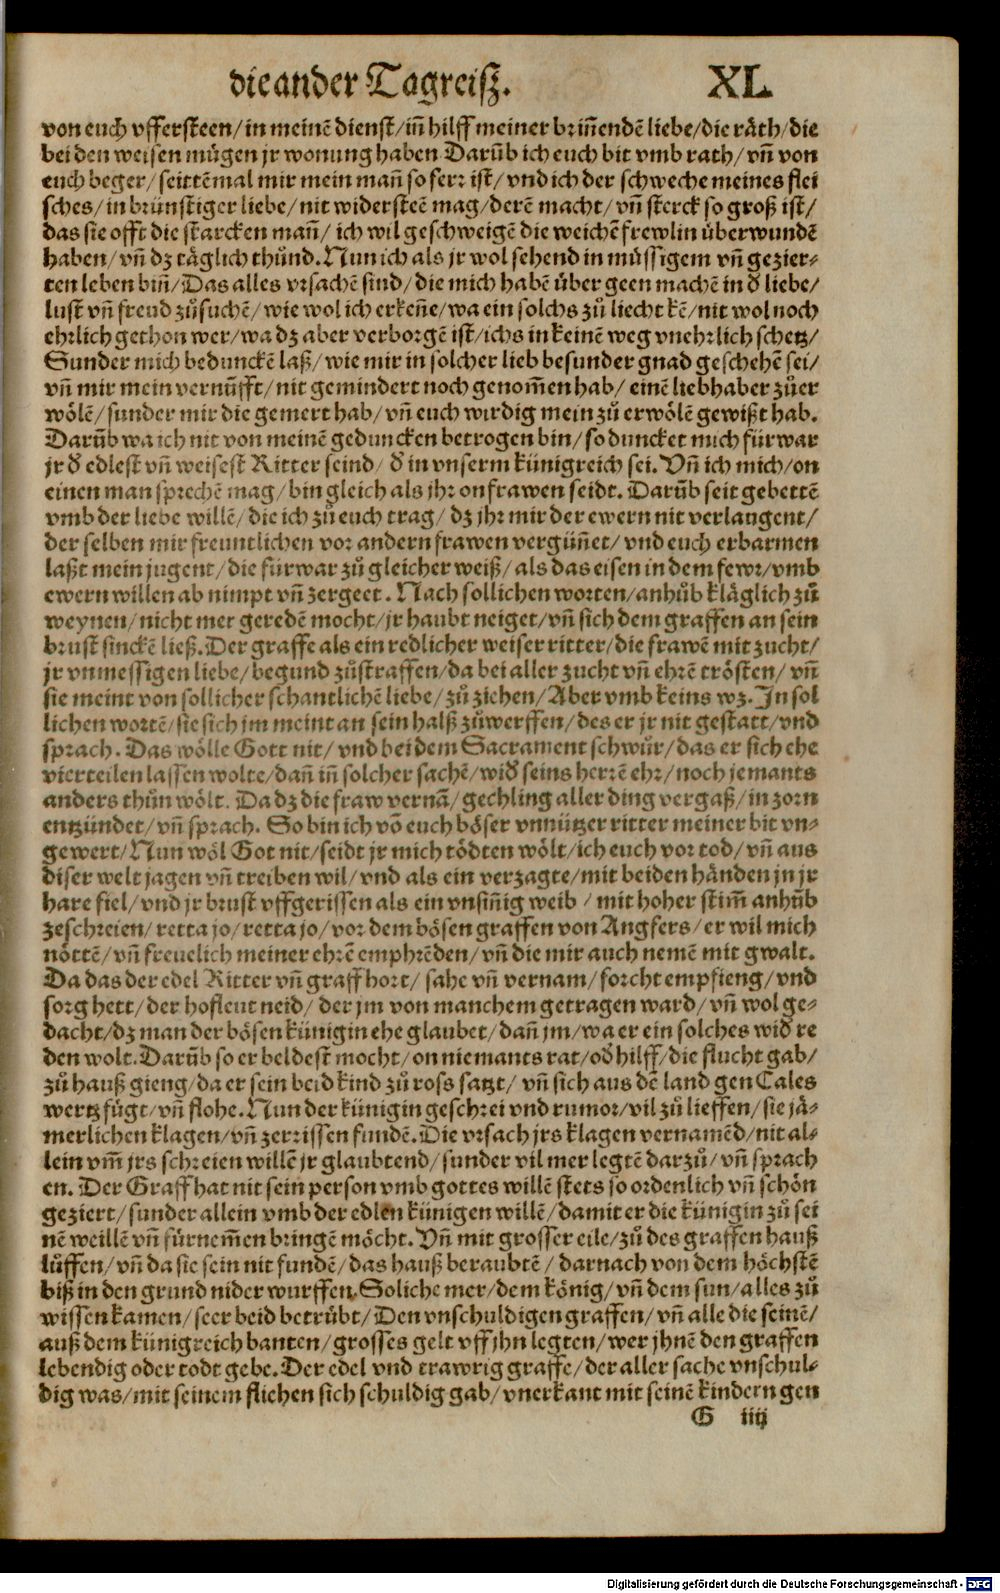 die ander Tagreisz. XL
von euch vffersteen/ in meinē dienst/ iñ hilff meiner briñendē liebe/ die räth/ die
bei den weisen mügen jr wonung haben Darūb ich euch bit vmb rath/ vñ von
euch beger/ seittēmal mir mein mañ so ferr ist/ vnd ich der schweche meines flei
sches/ in brünstiger liebe/ nit widersteē mag/ derē macht/ vñ sterck so groß ist/
das sie offt die starcken mañ/ ich wil geschweigē die weichē frewlin überwundē
haben/ vñ dz täglich thůnd. Nun ich als jr wol sehend in müssigem vñ gezier⸗
ten leben biñ/ Das alles vrsachē sind/ die mich habē über geen machē in d̄ liebe/
lust vñ freud zůsuchē/ wie wol ich erkeñe/ wa ein solchs zů liecht kē/ nit wol noch
ehrlich gethon wer/ wa dz aber verborgē ist/ ichs in keinē weg vnehrlich schetz/
Sunder mich bedunckē laß/ wie mir in solcher lieb besunder gnad geschehē sei/
vñ mir mein vernūfft/ nit gemindert noch genom̄en hab/ einē liebhaber zůer
wölē/ sunder mir die gemert hab/ vñ euch wirdig mein zů erwölē gewißt hab.
Darūb wa ich nit von meinē geduncken betrogen bin/ so duncket mich fürwar
jr d̄ edlest vñ weisest Ritter seind/ d̄ in vnserm künigreich sei. Vñ ich mich/ on
einen man sprechē mag/ bin gleich als jhr on frawen seidt. Darūb seit gebettē
vmb der liebe willē/ die ich zů euch trag/ dz jhr mir der ewern nit verlaugent/
der selben mir freuntlichen vor andern frawen vergüñet/ vnd euch erbarmen
laßt mein jugent/ die fürwar zů gleicher weiß/ als das eisen in dem fewr/ vmb
ewern willen ab nimpt vñ zergeet. Nach sollichen worten/ anhůb kläglich zů
weynen/ nicht mer geredē mocht/ jr haubt neiget/ vñ sich dem graffen an sein
brust sinckē ließ. Der graffe als ein redlicher weiser ritter/ die frawē mit zucht/
jr vnmessigen liebe/ begund zůstraffen/ da bei aller zucht vñ ehrē trösten/ vñ
sie meint von sollicher schantlichē liebe/ zů ziehen/ Aber vmb keins wz. In sol
lichen wortē/ sie sich jm meint an sein halß zůwerffen/ des er jr nit gestatt/ vnd
sprach. Das wölle Gott nit/ vnd bei dem Sacrament schwůr/ das er sich ehe
vierteilen lassen wolte/ dañ iñ solcher sachē/ wid̄ seins herrē ehr/ noch jemants
anders thůn wölt. Da dz die fraw vernā/ gechling aller ding vergaß/ in zorn
entzündet/ vñ sprach. So bin ich vō euch böser vnnützer ritter meiner bit vn⸗
gewert/ Nun wöl Got nit/ seidt jr mich tödten wölt/ ich euch vor tod/ vñ aus
diser welt jagen vñ treiben wil/ vnd als ein verzagte/ mit beiden händen jn jr
hare fiel/ vnd jr brust vffgerissen als ein vnsiñig weib / mit hoher stim̄ anhůb
zeschreien/ retta jo/ retta jo/ vor dem bösen graffen von Angfers/ er wil mich
nöttē/ vñ freuelich meiner ehrē emphrēden/ vñ die mir auch nemē mit gwalt.
Da das der edel Ritter vñ graff hort/ sahe vñ vernam/ forcht empfieng/ vnd
sorg hett/ der hofleut neid/ der jm von manchem getragen ward/ vñ wol ge⸗
dacht/ dz man der bösen künigin ehe glaubet/ dañ jm/ wa er ein solches wid̄ re
den wolt. Darūb so er beldest mocht/ on niemants rat/ od̄ hilff/ die flucht gab/
zů hauß gieng/ da er sein beid kind zů ross satzt/ vñ sich aus dē land gen Cales
wertz fůgt/ vñ flohe. Nun der künigin geschrei vnd rumor/ vil zů lieffen/ sie jä⸗
merlichen klagen/ vñ zerrissen fundē. Die vrsach jrs klagen vernamēd/ nit al⸗
lein vm̄ jrs schreien willē jr glaubtend/ sunder vil mer legtē darzů/ vñ sprach
en. Der Graff hat nit sein person vmb gottes willē stets so ordenlich vñ schön
geziert/ sunder allein vmb der edlen künigen willē/ damit er die künigin zů sei
nē weillē vñ fürnem̄en bringē möcht. Vñ mit grosser eile/ zů des graffen hauß
lůffen/ vñ da sie sein nit fundē/ das hauß beraubtē / darnach von dem höchstē
biß in den grund nider wurffen. Soliche mer/ dem könig/ vñ dem sun/ alles zů
wissen kamen/ seer beid betrůbt/ Den vnschuldigen graffen/ vñ alle die seinē/
auß dem künigreich banten/ grosses gelt vff jhn legten/ wer jhnē den graffen
lebendig oder todt gebe. Der edel vnd trawrig graffe/ der aller sache vnschul⸗
dig was/ mit seinem fliehen sich schuldig gab/ vnerkant mit seinē kindern gen
G iiij
Digitalisierung gefördert durch die Deutsche Forschungsgemeinschaft - DFG